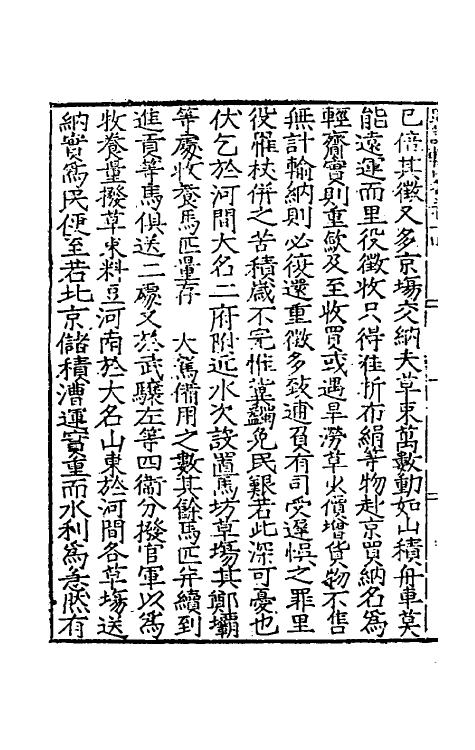 已倍其徵又多京塲交納夫草束萬數動如山積舟車莫
能遠運而里役徵收只得准折布絹等物赴京買納名爲
輕齎實則重歛及至收買或遇旱澇草少價增貨物不售
無計輸納則必復還重徵多致逋負有司受遲悞之罪里
役罹杖併之苦積歲不完惟冀蠲免民艱若此深可憂也
伏乞於河間大名二府附近水次設置馬坊草塲其鄭壩
等處收養馬匹量存 大駕備用之數其餘馬匹并續到
進貢等馬俱送二處又於武驤左等四衞分撥官軍以爲
牧養量撥草束料豆河南於大名山東於河間各草塲送
納實爲民便至若北京儲積漕運實重而水利爲急然有